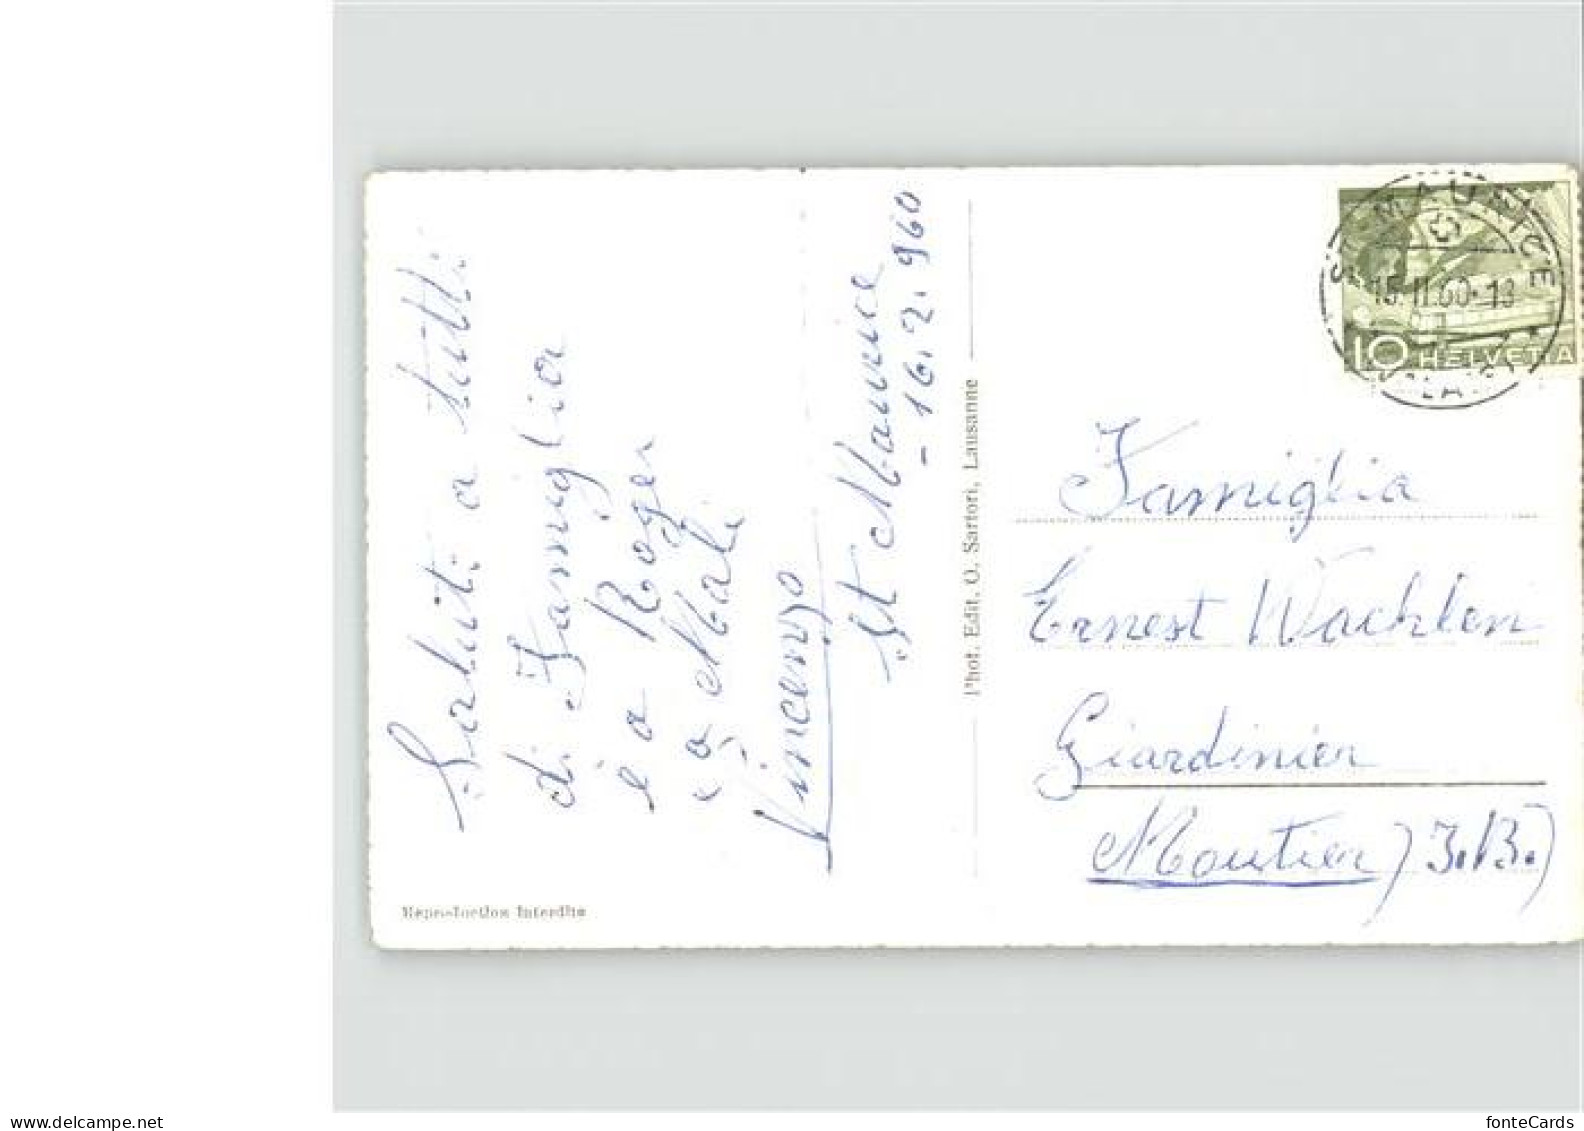 Saluti a tutti
di Famiglia
e a Roger
e a Mali
Vincenzo
St Maurice
- 16.2.960
Phot. Edit. O. Sartori, Lausanne
Reproduction Interdite
ST-MAURICE
15.II.60-13
10 HELVETIA
Famiglia
Ernest Wachlen
Giardinier
Moutier) J.B.)
www.delcampe.net
fonteCards